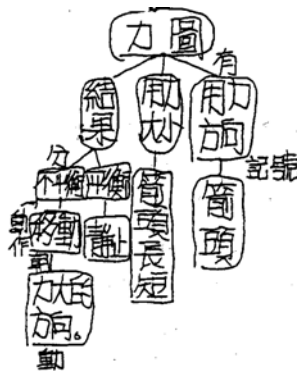 力圖
有
結果
用力大小
用力方向
記號
分
不平衡
平衡
箭頭長短
箭頭
動作
移動
靜止
力大的方向。
動